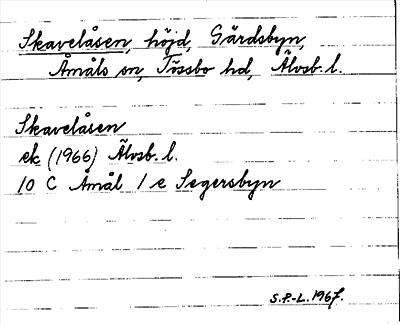 Skavelåsen, höjd, Gärdsbyn,
Åmåls sn, Tössbo hd, Älvsb. l.
Skavelåsen
ek (1966) Älvsb. l.
10 C Åmål 1 e Segersbyn
S.P-L. 1967.